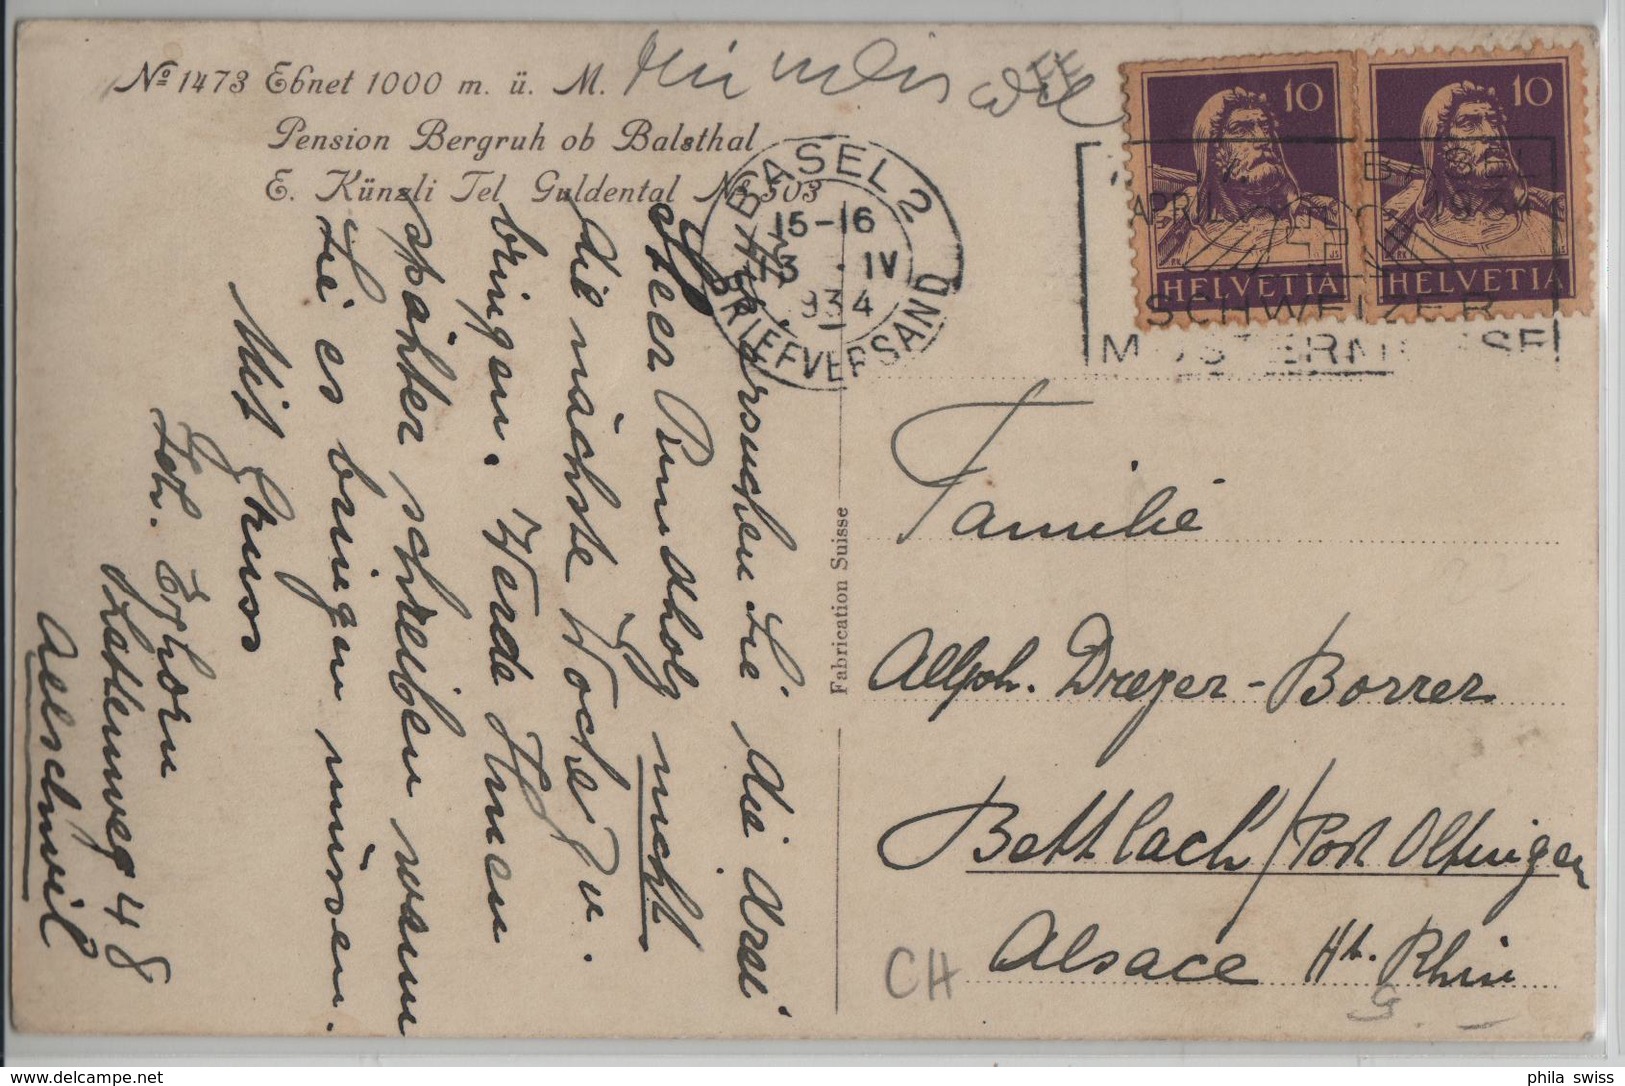 Nº 1473 Ebnet 1000 m. ü. M.
Pension Bergruh ob Balsthal
E. Künzli Tel Guldental Nº 503
BASEL 2
15-16
3. IV
1934
BRIEFVERSAND
BASEL
APRIL 1934
SCHWEIZER
MUSTERMESSE
10
HELVETIA
10
HELVETIA
Bitte ersuchen Sie die drei
Ster Rundholz nicht
die nächste Woche zu
bringen. Werde Ihnen
später schreiben wann
Sie es bringen müssen.
Mit Gruss
Geh. Erhorn
Lettenweg 48
Allschwil
Fabrication Suisse
Familie
Allph. Drezer-Borrer
Bettlach / Post Oltingen
Alsace Ht. Rhin
CH
phila swiss